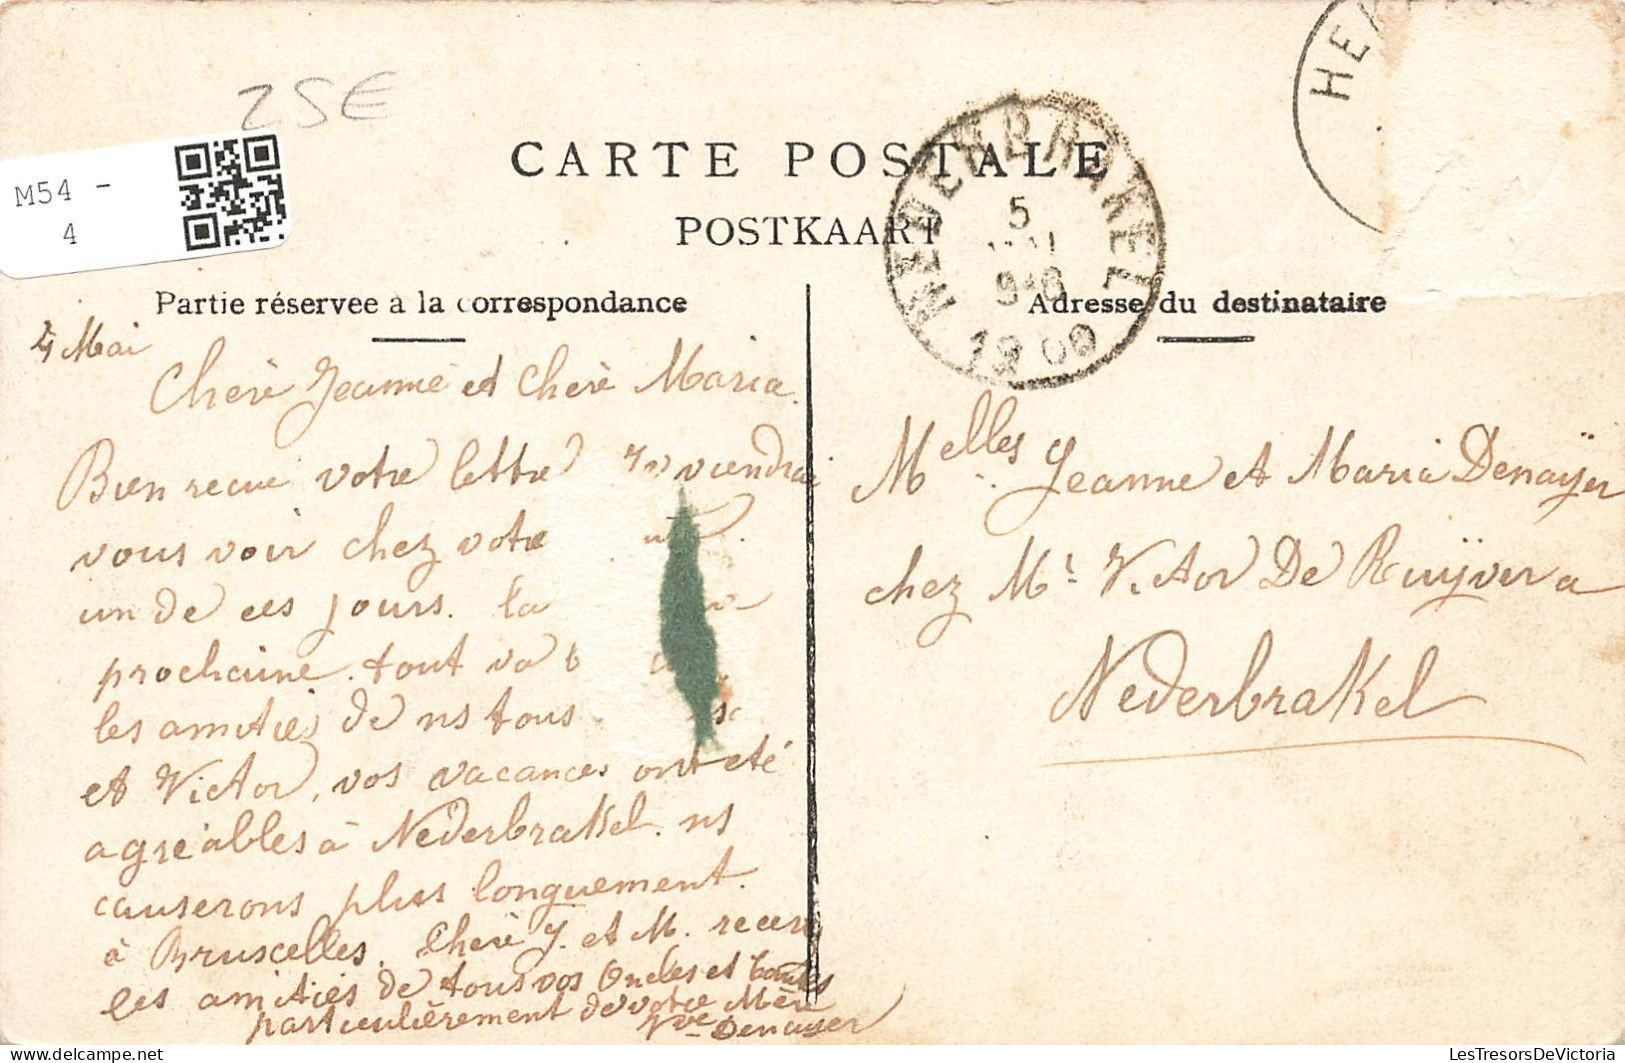 25E
M54 -
4
HE
CARTE POSTALE
POSTKAART
NEDERBRAKEL
5
1909
Partie réservée à la correspondance
Adresse du destinataire
4 Mai
Cherè Jeanne et cherè Maria.
Bien recue votre lettre viendrai
vous voir chez votre
un de ces jours. la
prochaine. tout va b
les amitiés de ns tous
et Victor, vos vacances ont eté
agréables à Nederbrakel. ns
causerons plus longuement.
à Bruxelles. Cherè J. et M. recev
les amitiés de tous vos Oncles et tantes
particulièrement de votre Mère
Vve Denayer
Melles Jeanne et Maria Denaÿer
chez Mr Victor De Ruÿver a
Nederbrakel
LesTresorsDeVictoria